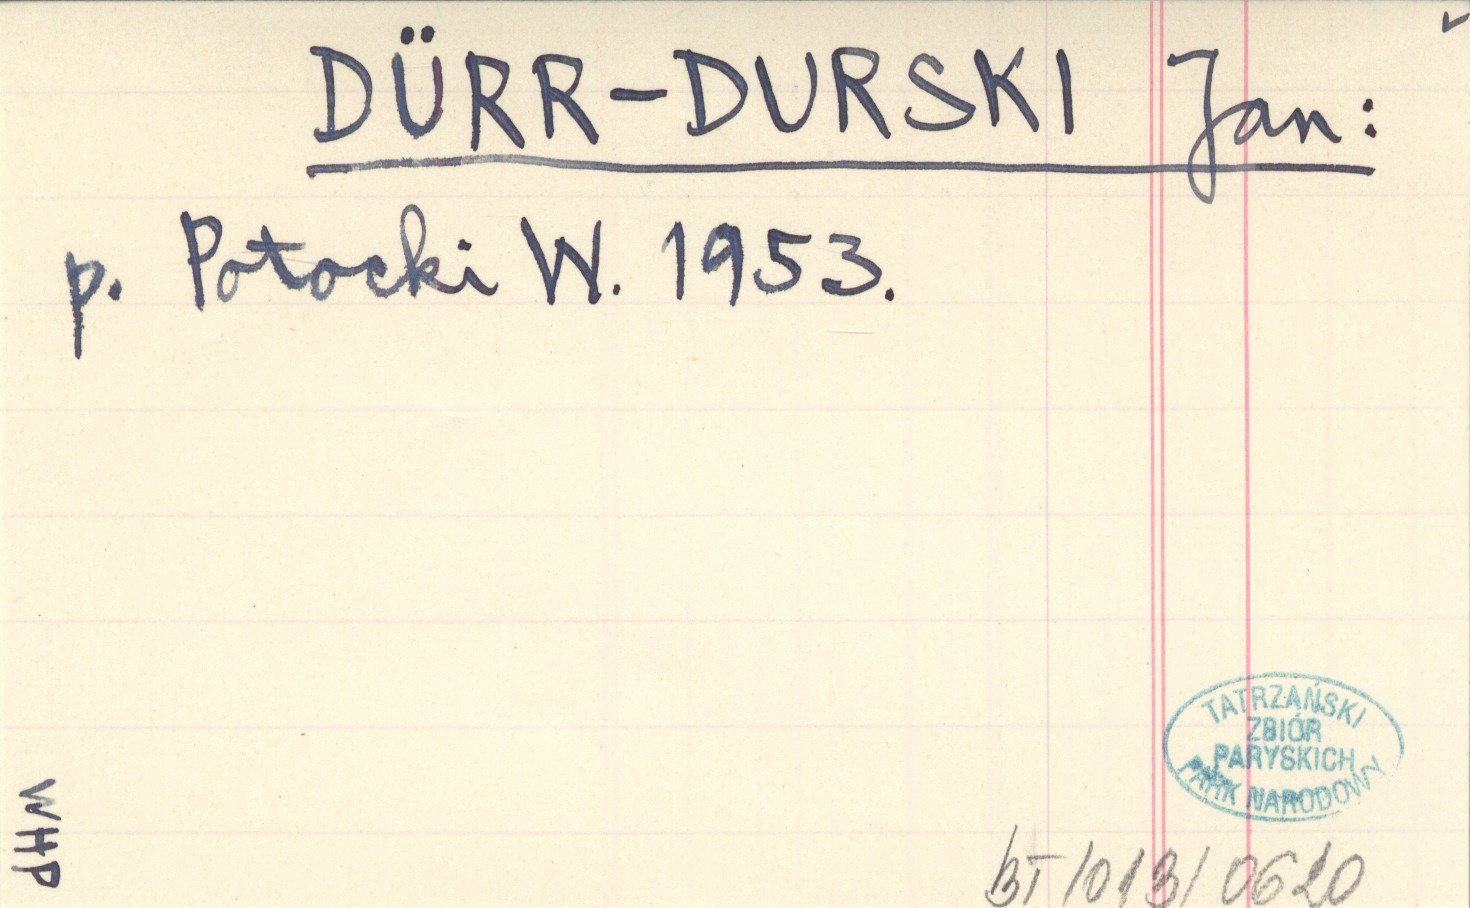 DÜRR-DURSKI Jan:
p. Potocki W. 1953.
TATRZAŃSKI
ZBIÓR
PARYSKICH
PARK NARODOWY
WHP
BT/013/0620